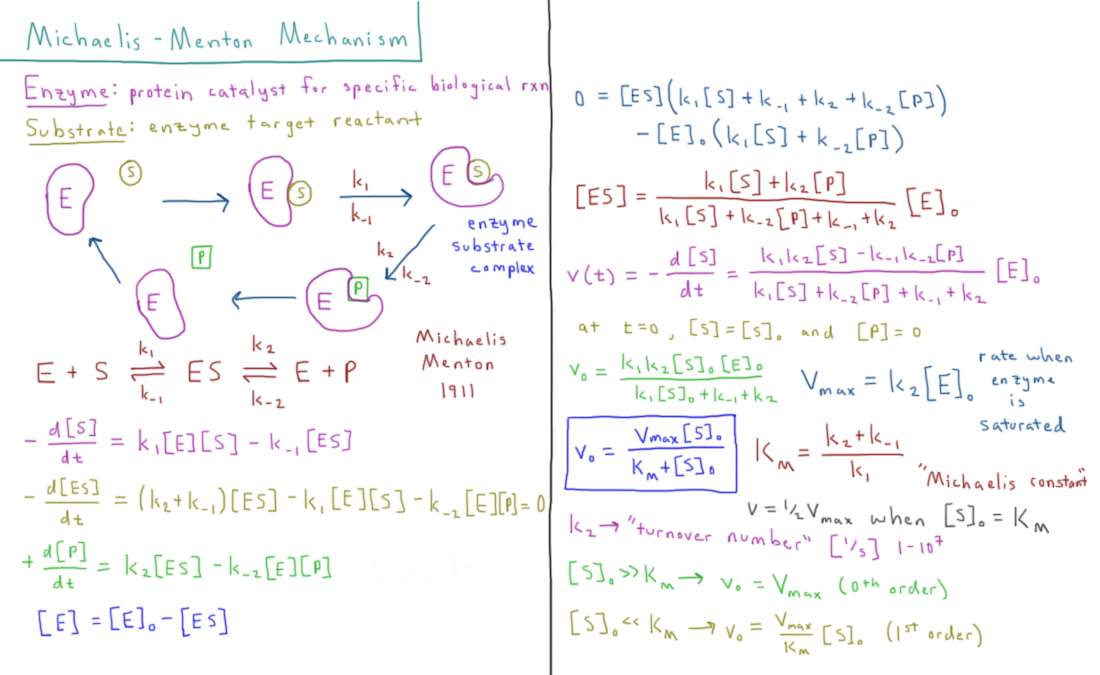 Michaelis - Menton Mechanism
Enzyme: protein catalyst for specific biological rxn
Substrate: enzyme target reactant
E
S
E S
k₁
k₋₁
E S
enzyme
substrate
complex
k₂
k₋₂
P
E
E P
Michaelis
Menton
1911
k₁ k₂
E + S ⇌ ES ⇌ E + P
k₋₁ k₋₂
- d[S]/dt = k₁[E][S] - k₋₁[ES]
- d[ES]/dt = (k₂+k₋₁)[ES] - k₁[E][S] - k₋₂[E][P] = 0
+ d[P]/dt = k₂[ES] - k₋₂[E][P]
[E] = [E]₀ - [ES]
0 = [ES](k₁[S] + k₋₁ + k₂ + k₋₂[P])
- [E]₀(k₁[S] + k₋₂[P])
[ES] = (k₁[S] + k₂[P])/(k₁[S] + k₋₂[P] + k₋₁ + k₂) [E]₀
v(t) = - d[S]/dt = (k₁k₂[S] - k₋₁k₋₂[P])/(k₁[S] + k₋₂[P] + k₋₁ + k₂) [E]₀
at t=0, [S]=[S]₀ and [P]=0
v₀ = k₁k₂[S]₀[E]₀/(k₁[S]₀ + k₋₁ + k₂)
Vmax = k₂[E]₀
rate when
enzyme
is
saturated
v₀ = Vmax[S]₀/(KM + [S]₀)
KM = (k₂ + k₋₁)/k₁
"Michaelis constant"
v = ½ Vmax when [S]₀ = KM
k₂ → "turnover number" [1/s] 1-10⁷
[S]₀ >> KM → v₀ = Vmax (0th order)
[S]₀ << KM → v₀ = Vmax/KM [S]₀ (1st order)